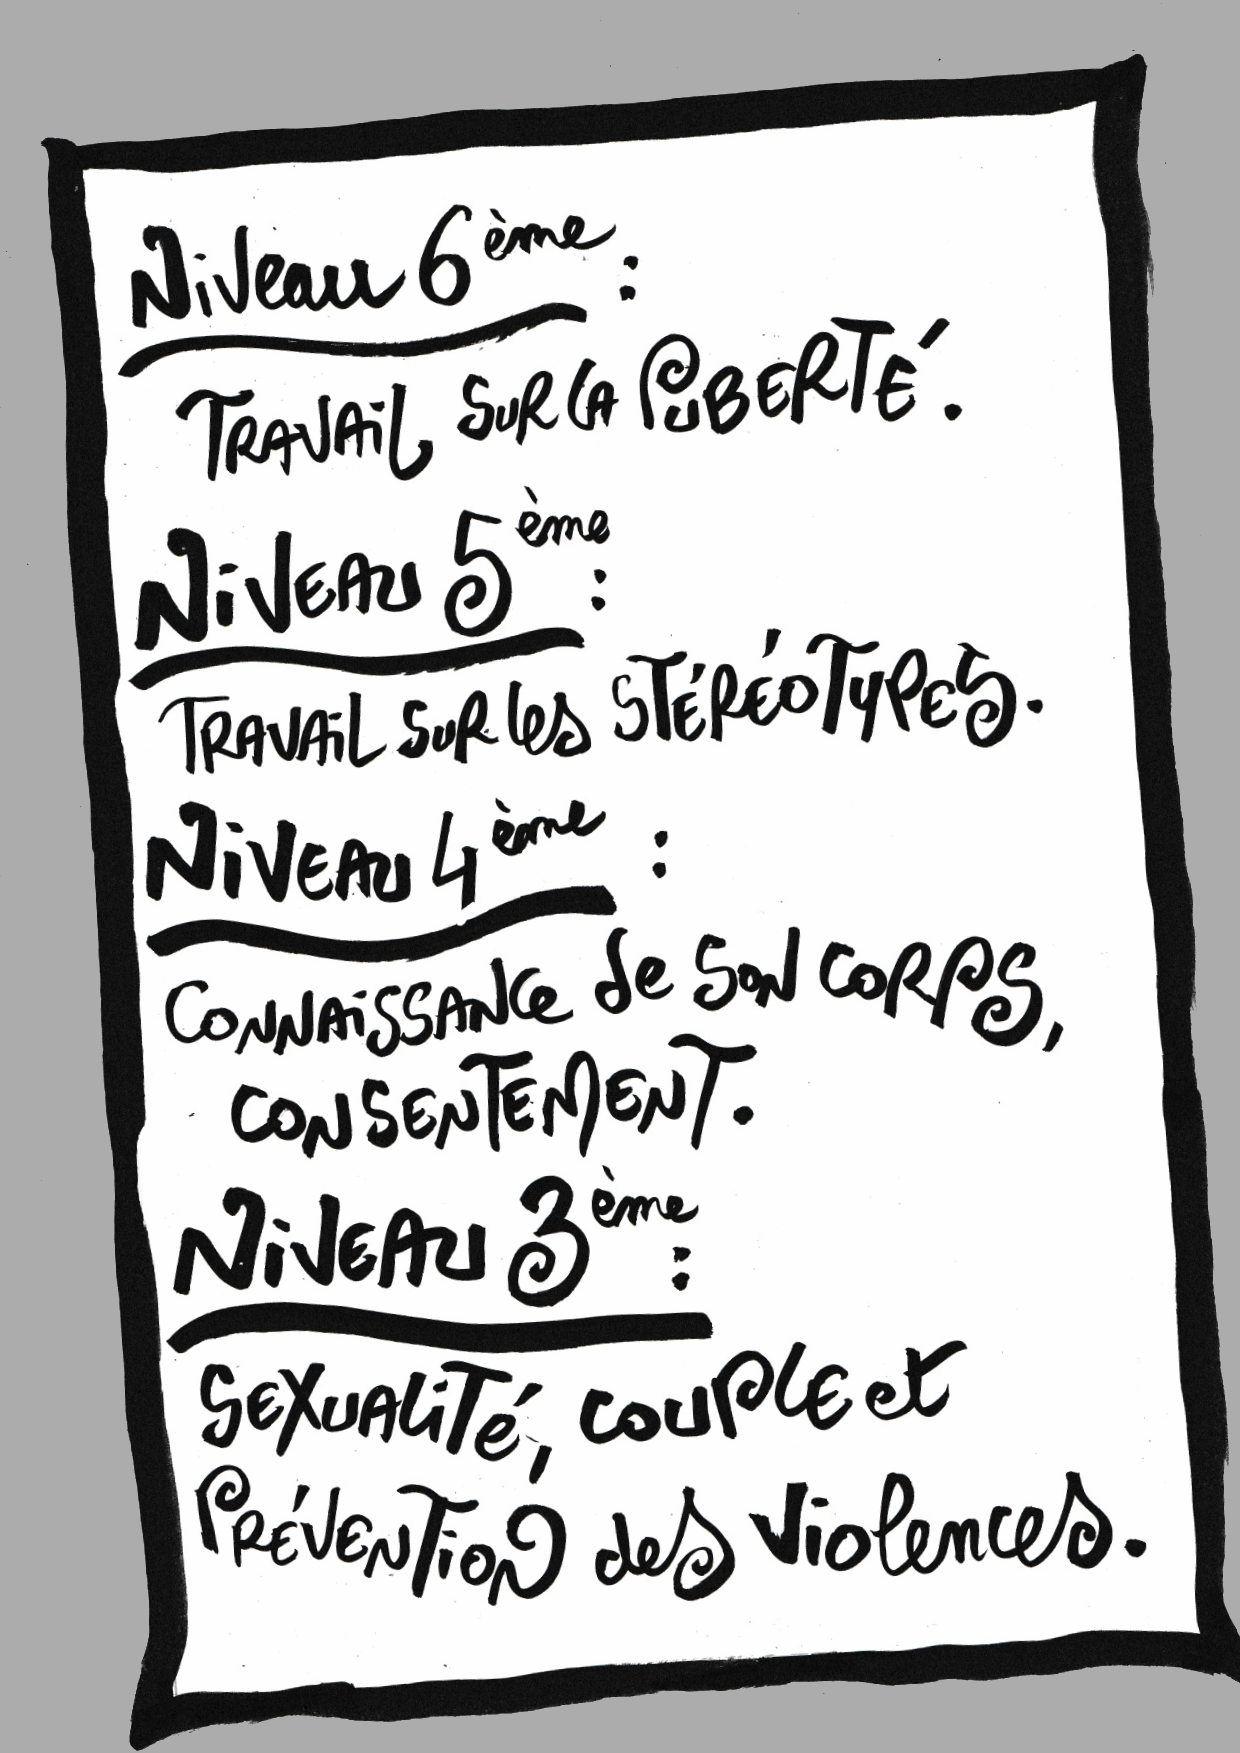 Niveau 6ème :
TRAVAiL SUR LA PUBERTÉ.
NiVEAU 5ème :
TRAVAiL SUR les STÉRÉOTYPES.
NiVEAU 4ème :
CONNAiSSANCe de SON CORPS,
CONSENTEMENT.
NiVEAU 3ème :
SEXUALiTé, COUPLE et
PRÉVENTiON des violences.